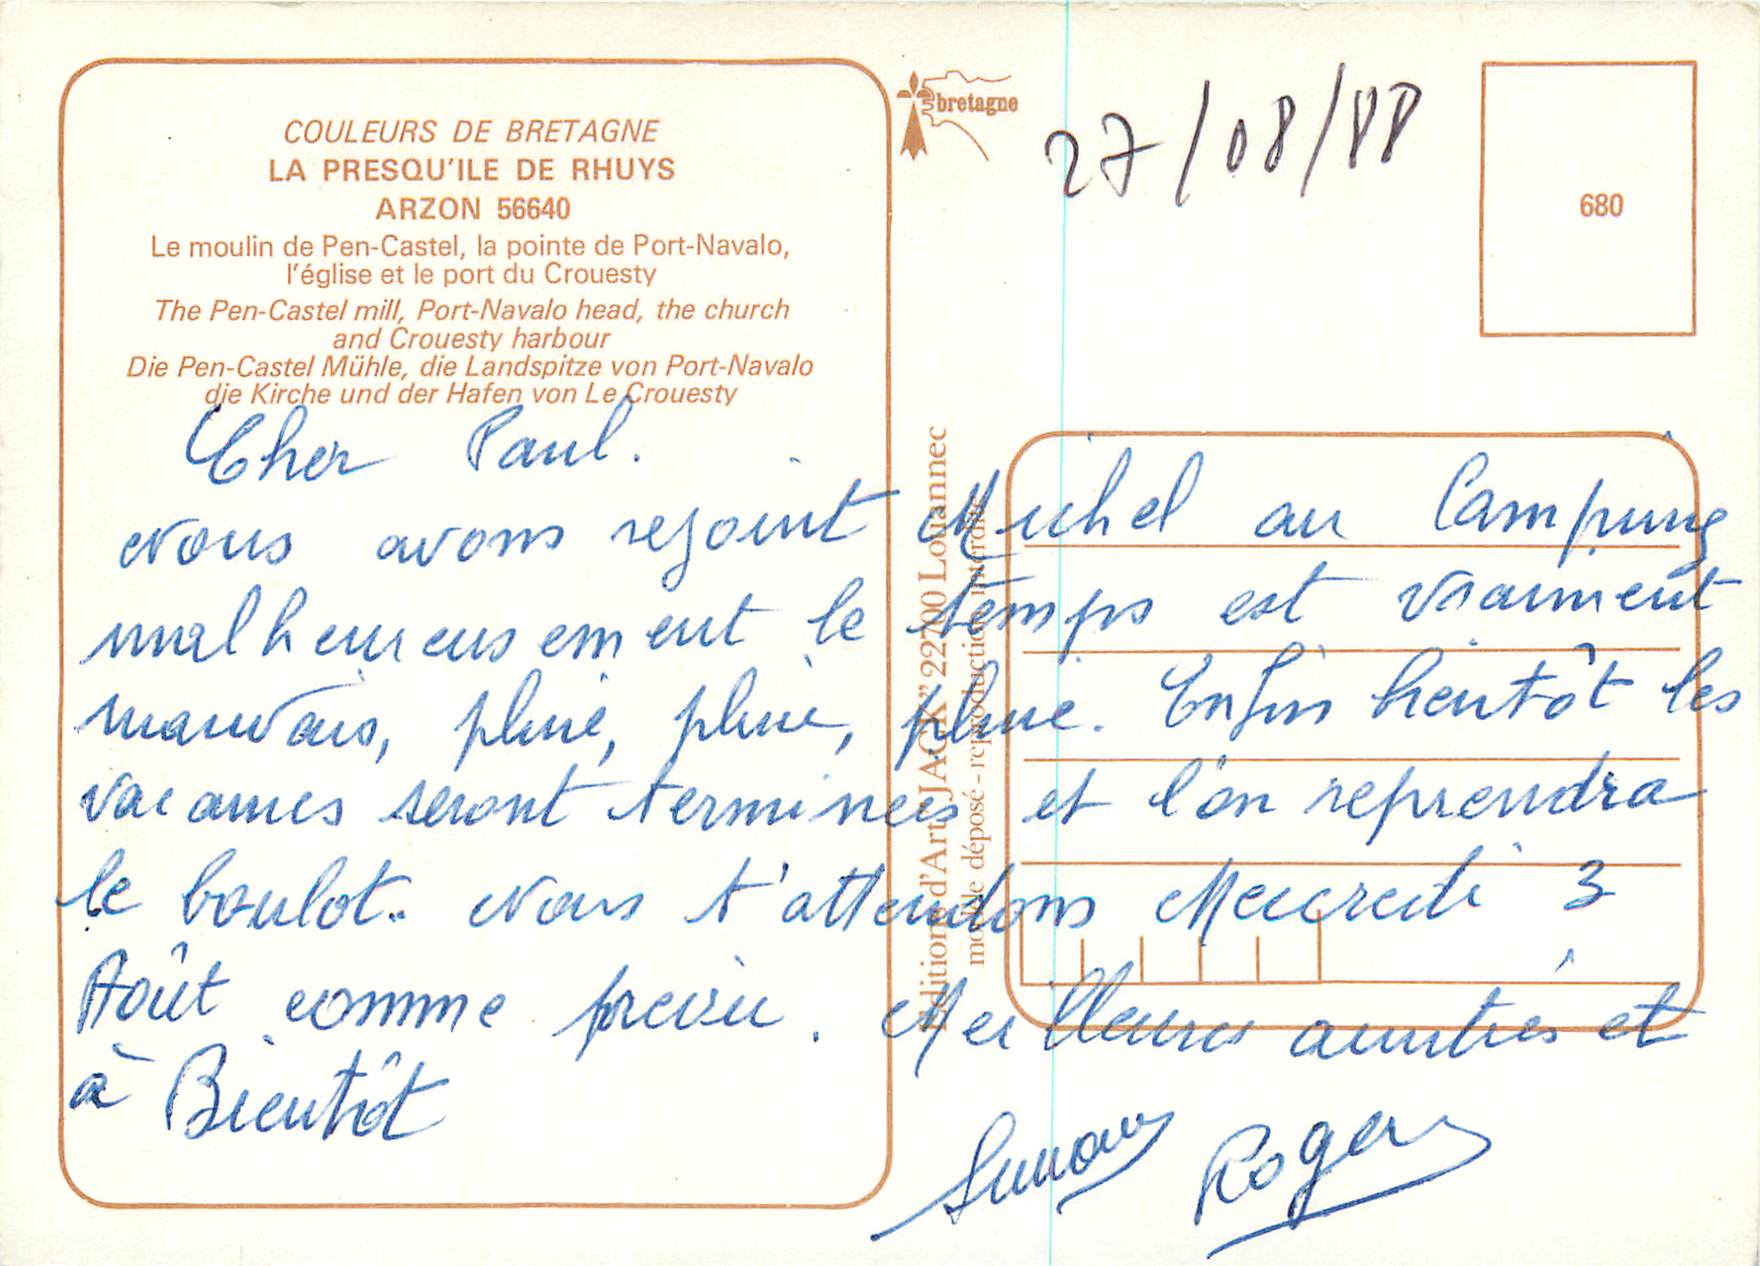 COULEURS DE BRETAGNE
LA PRESQU'ILE DE RHUYS
ARZON 56640
Le moulin de Pen-Castel, la pointe de Port-Navalo,
l'église et le port du Crouesty
The Pen-Castel mill, Port-Navalo head, the church
and Crouesty harbour
Die Pen-Castel Mühle, die Landspitze von Port-Navalo
die Kirche und der Hafen von Le Crouesty
bretagne
27/08/88
680
Editions d'Art "JACK" 22700 Louannec
modèle déposé - reproduction interdite
Cher Paul.
Nous avons rejoint Michel au Camping
malheureusement le temps est vraiment
mauvais, pluie, pluie, pluie. Enfin bientôt les
vacances seront terminées et l'on reprendra
le boulot. Nous t'attendons Mercredi 3
Août comme prévu. Meilleures amitiés et
à Bientôt
Roger